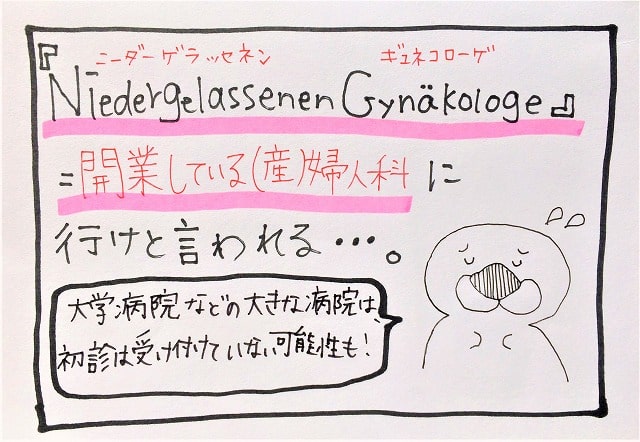 ニーダーゲラッセネン ギュネコローゲ
『Niedergelassenen Gynäkologe』
=開業している(産)婦人科に
行けと言われる…。
大学病院などの大きな病院は、
初診は受け付けていない可能性も!